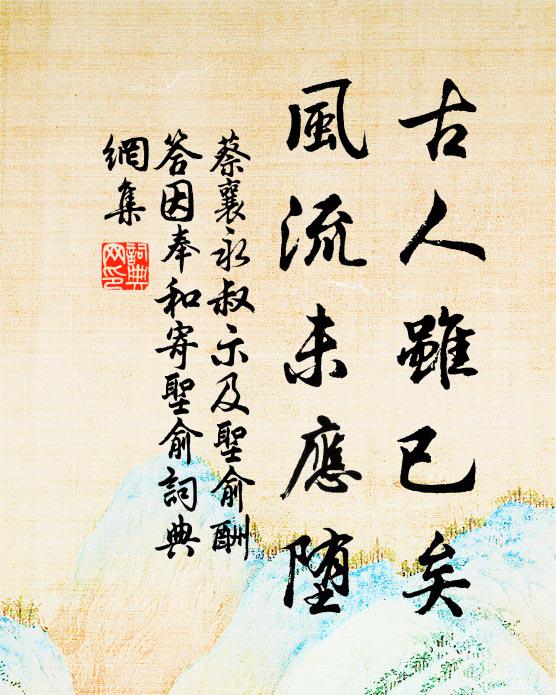 古人雖已矣
風流未應堕
蔡襄永叔示及聖俞酬
答因奉和寄聖俞詞典
網集
詞典
网印